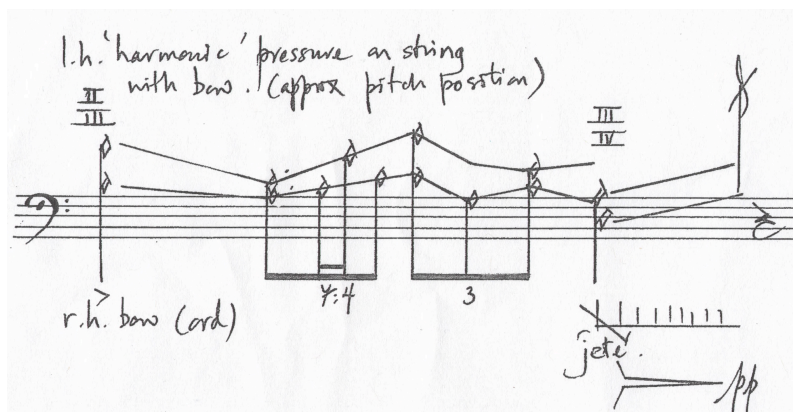 l.h. 'harmonic' pressure on string
with bow. (approx pitch position)
II
III
III
IV
7:4
3
r.h. bow (ord)
jeté.
pp